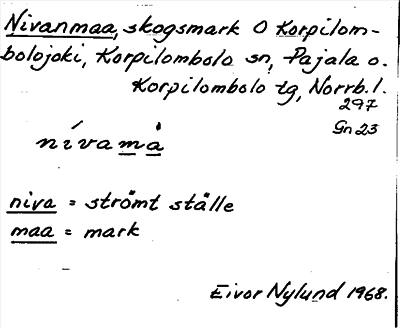 Nivanmaa, skogsmark O Korpilom-
bolojoki, Korpilombolo sn, Pajala o.
Korpilombolo tg, Norrb. l.
297
Gn 23
nívamå
niva = strömt ställe
maa = mark
Eivor Nylund 1968.